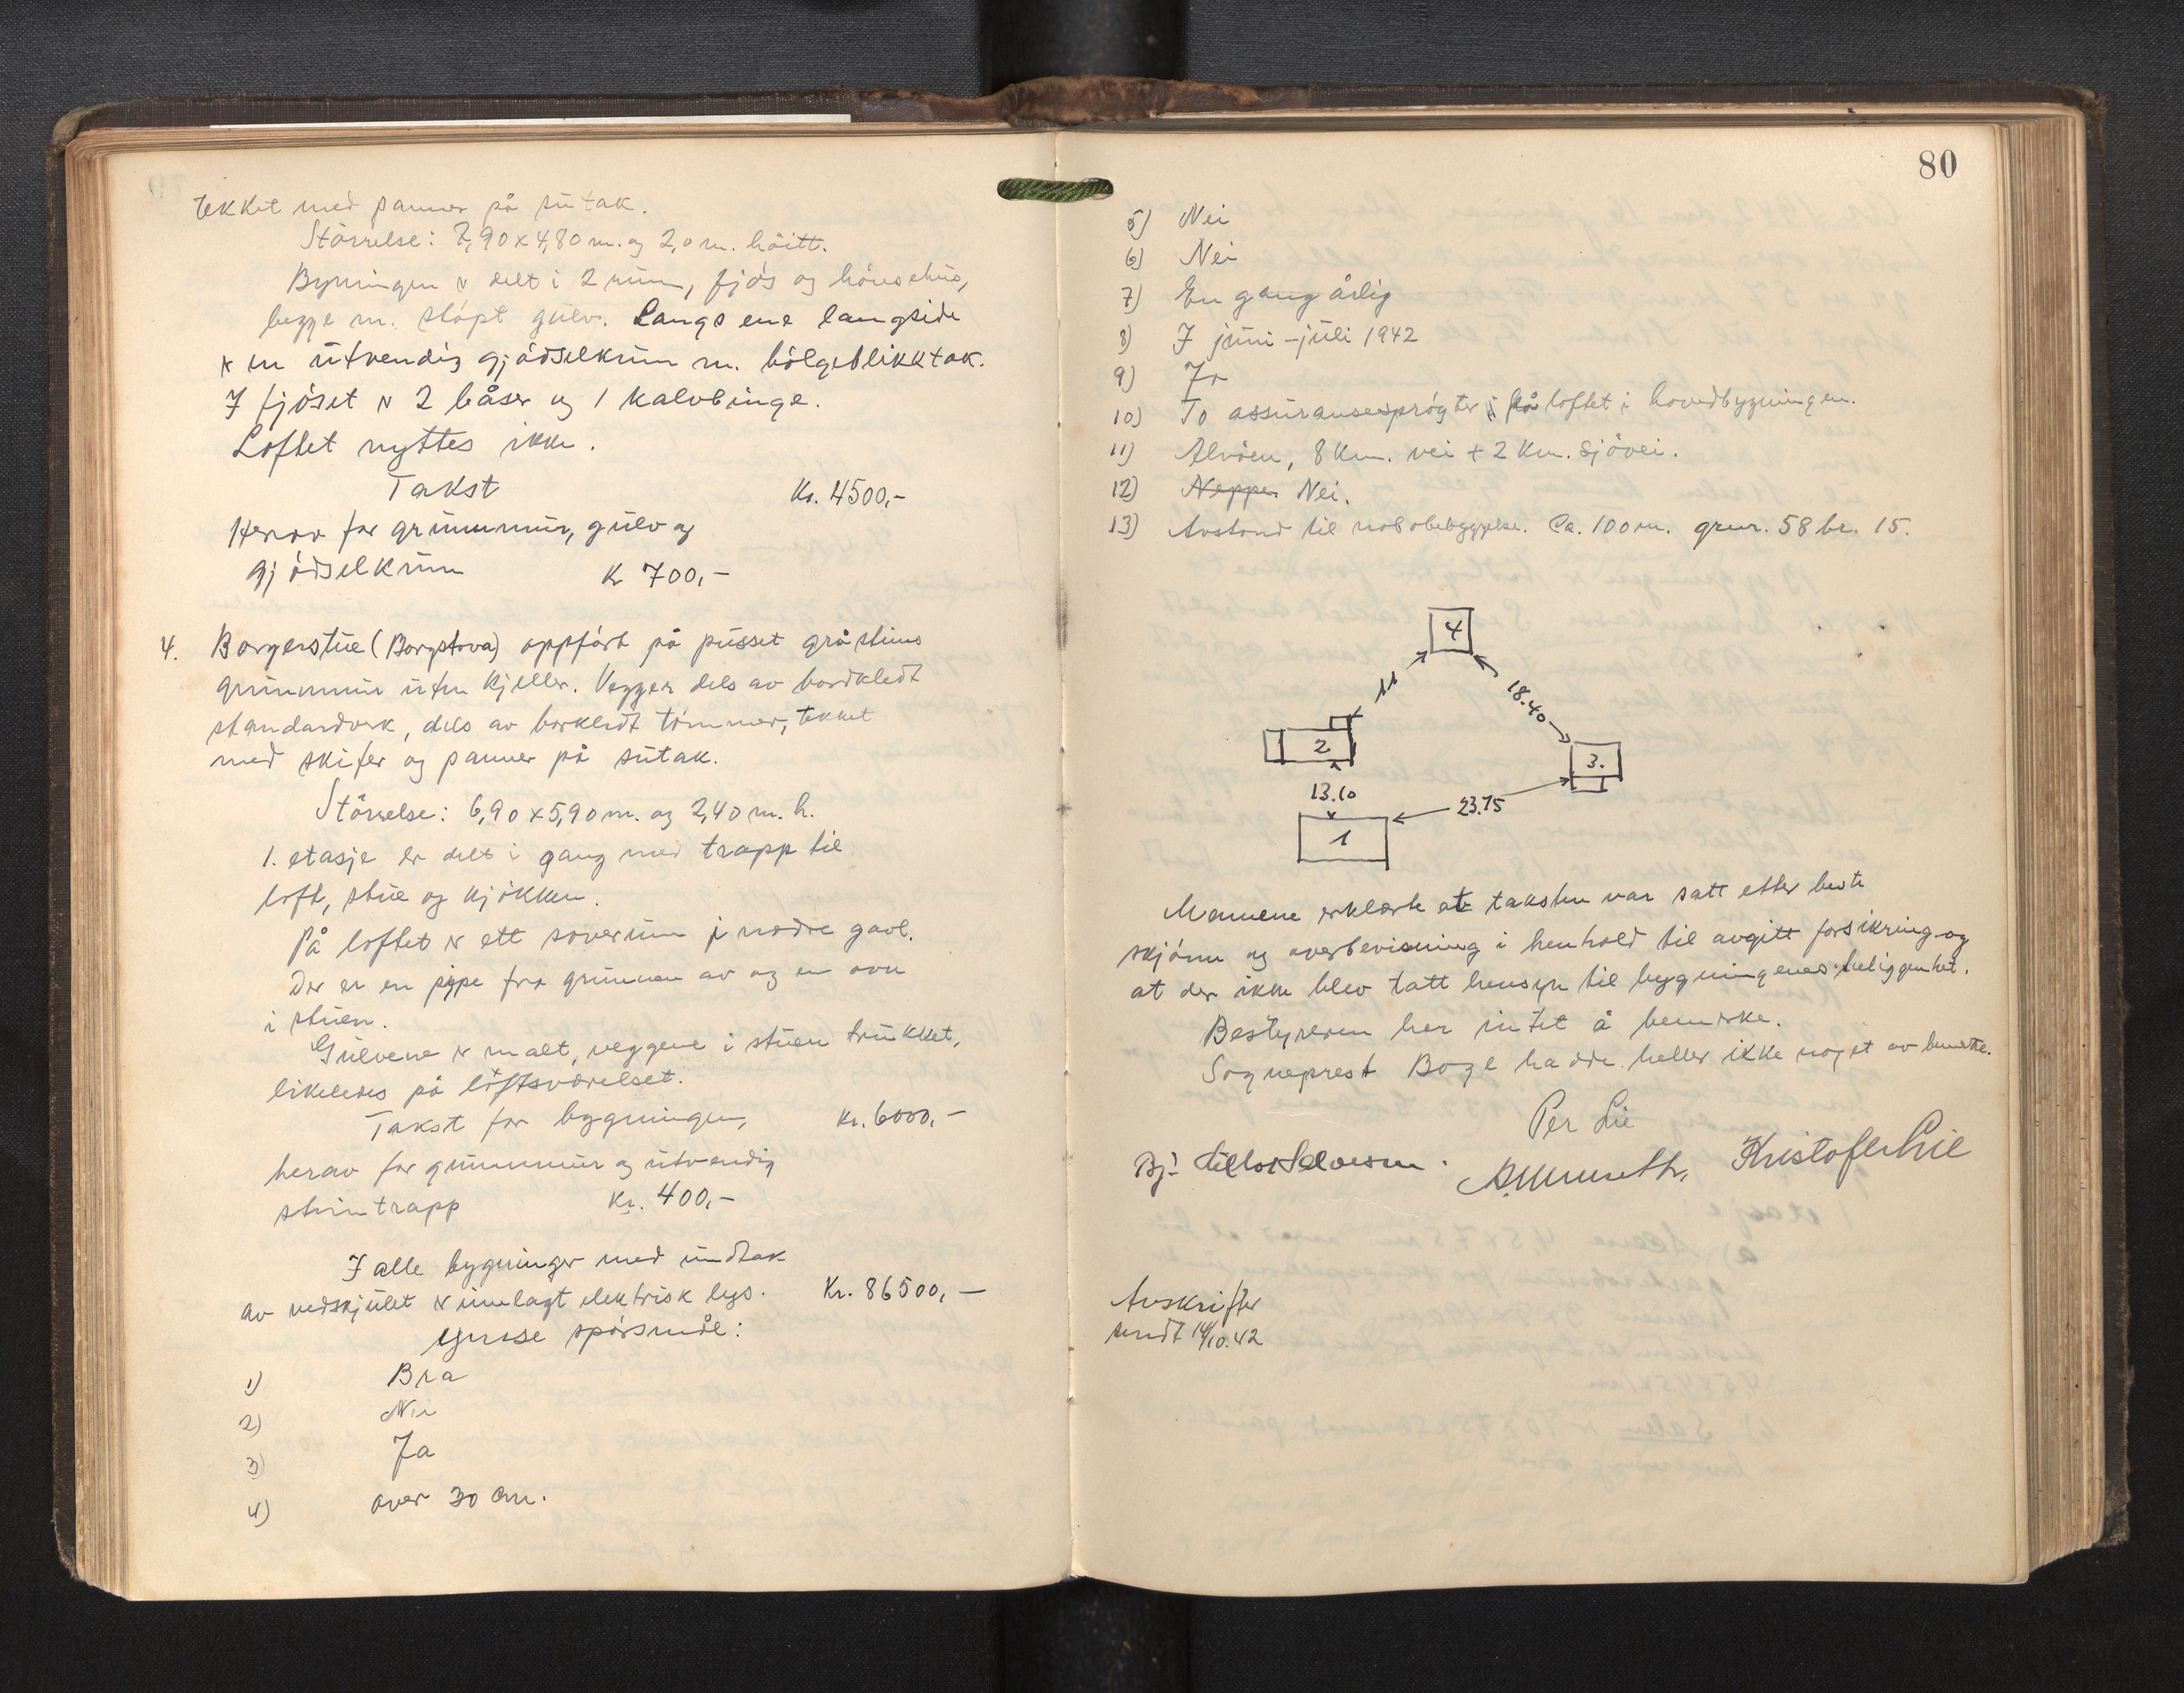 tekket med panner på sutak.
Störrelse: 7,90 x 4,80 m. og 2,0 m. höitt.
Bygningen er delt i 2 rum, fjös og hönsehus,
begge m. stöpt gulv. Langs ene langside
er en utvendig gjödselkum m. bölgeblikktak.
I fjöset er 2 båser og 1 kalvbinge.
Loftet nyttes ikke.
Takst Kr. 4500,-
Herav for grunnmur, gulv og
gjödselkum Kr 700,-
4. Borgerstue (Borgstova) oppfört på pusset gråstens
grunnmur uten kjeller. Vegger dels av bordkledt
standardverk, dels av borkledt tömmer, tekket
med skifer og panner på sutak.
Störrelse: 6,90 x 5,90 m. og 2,40 m. h.
1. etasje er delt i gang med trapp til
loft, stue og kjökken.
På loftet er ett soverum i nordre gavl.
Der er en pipe fra grunnen av og en ovn
i stuen.
Gulvene er malt, veggene i stuen trukket,
likeledes på loftsværelset.
Takst for bygningen, Kr. 6000,-
herav for grunnmur og utvendig
stentrapp Kr. 400,-
I alle bygninger med undtak
av vedskjulet er innlagt elektrisk lys. Kr. 86500,-
Ymse spörsmål:
1) Bra
2) Nei
3) Ja
4) over 30 cm.
80
5) Nei
6) Nei
7) En gang årlig
8) I juni-juli 1942
9) Ja
10) To assuransesprögter på loftet i hovedbygningen.
11) Alvöen, 8 km. vei + 2 km. sjövei.
12) Neppe Nei.
13) Avstand til nabobebyggelse. Ca. 100 m. gnr. 58 br. 15.
4
11
18.40
2
3.
13.10
23.75
1
Mennene erklærte at taksten var satt etter beste
skjönn og overbevisning i henhold til avgitt forsikring og
at der ikke blev tatt hensyn til bygningenes beliggenhet.
Bestyreren har intet å bemerke.
Sogneprest Boge hadde heller ikke noget av bemerke.
Per Lie
Kristofer Lie
Avskrifter
sendt 14/10.42